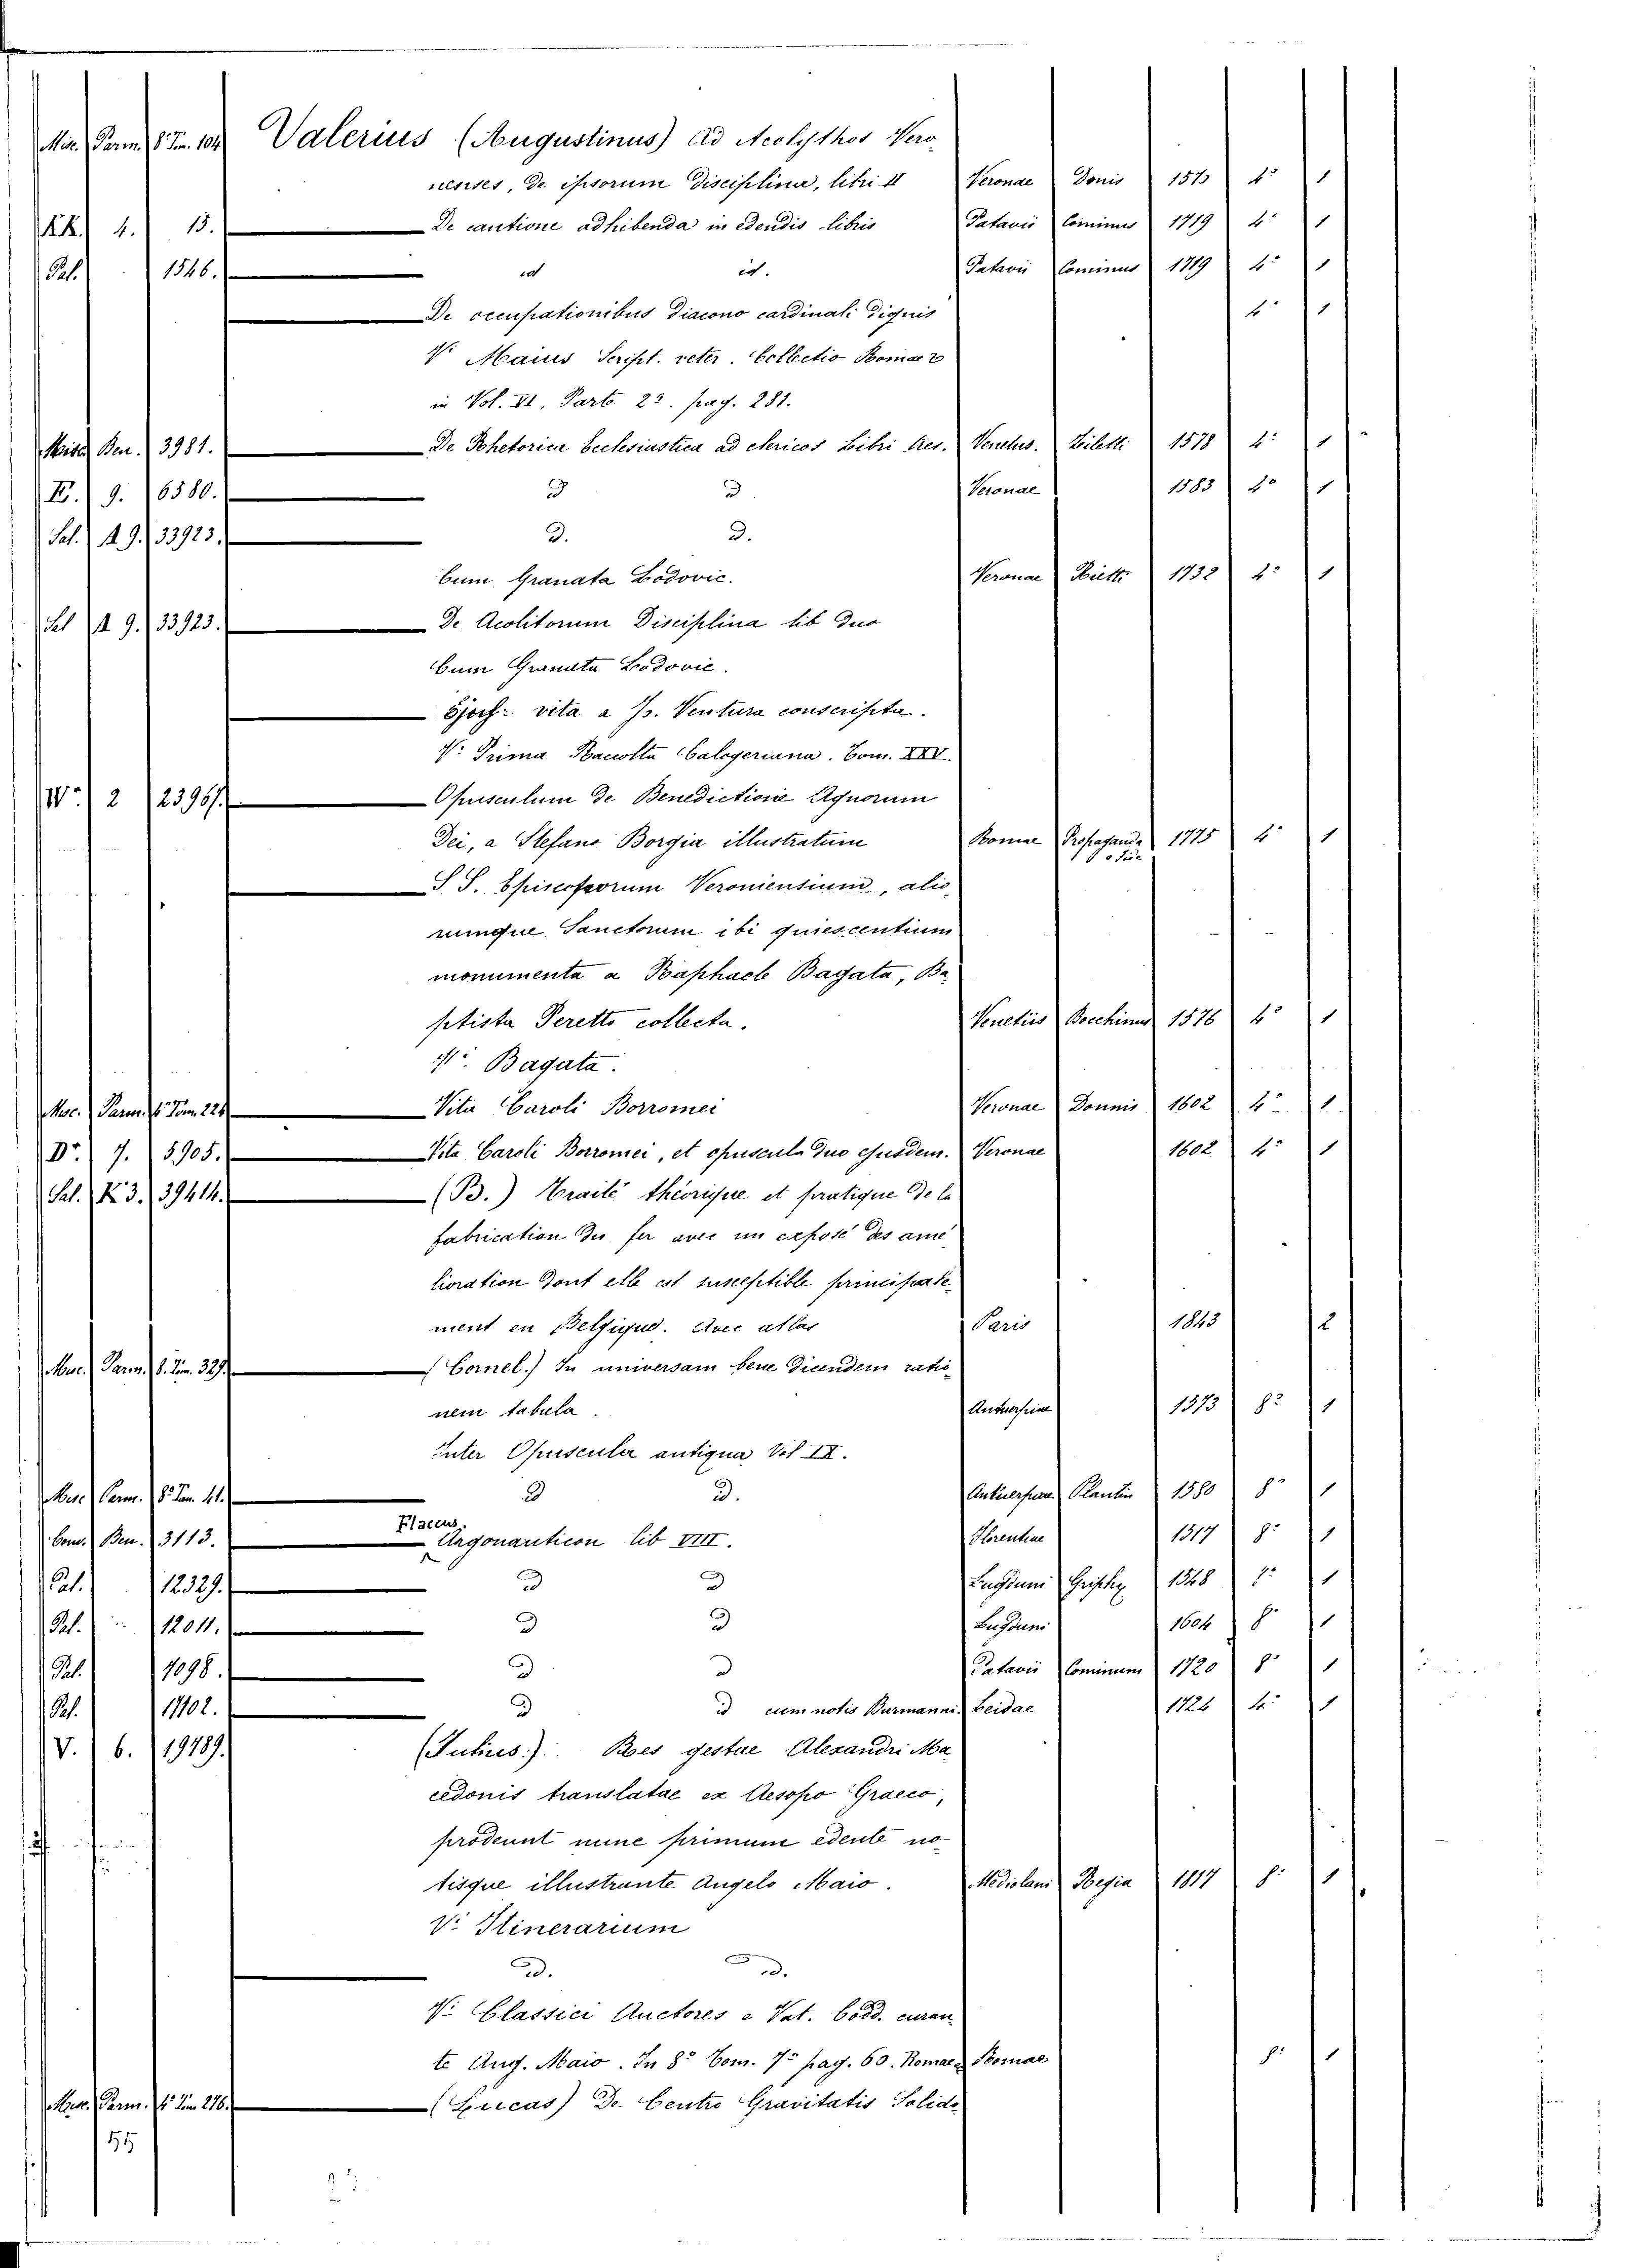 Mis. Parm. 8° Tom. 104 Valerius (Augustinus) ad Acolythos Vero-
nenses, de ipsorum Disciplina, libri II Veronae Donis 1573 4° 1
XK. 4. 15. De cautione adhibenda in edendis libris Patavii Cominus 1719 4° 1
Pal. 1546. id id. Patavii Cominus 1719 4° 1
De occupationibus diacono cardinali dignis 4° 1
V. Maius Script. veter. Collectio Romae
in Vol. VI, Parte 2ª. pag. 281.
Misc. Ben. 3981. De Rhetorica Ecclesiastica ad clericos Libri tres. Venetus. Ziletti 1578 4° 1
9. 6580. D D Veronae 1583 4° 1
Sal. A 9. 33923. D. D.
Cum Granata Lodovic. Veronae 1732 4° 1
Sal A 9. 33923. De Acolitorum Disciplina lib duo
Cum Granata Lodovic.
Ejusd. vita a Jo. Ventura conscripta.
V. Prima Raccolta Calogeriana. Tom. XXV.
W. 2 23967. Opusculum de Benedictione Agnorum
Dei, a Stefano Borgia illustratum Romae Propaganda Fide 1775 4° 1
S S. Episcoporum Veronensium, alio-
rumque Sanctorum ibi quiescentium
monumenta a Raphaele Bagata, Ba-
ptista Peretto collecta. Venetiis Bocchinus 1576 4° 1
V. Bagata.
Misc. Parm. 4° Tom. 226 Vita Caroli Borromei Veronae Donnis 1602 4° 1
D. 7. 5905. Vita Caroli Borromei, et opuscula duo ejusdem. Veronae 1602 4° 1
Sal. K 3. 39414. (B.) Traité théorique et pratique de la
fabrication du fer avec un exposé des amé-
lioration dont elle est susceptible principale-
ment en Belgique. Avec atlas Paris 1843 2
Misc. Parm. 8. Tom. 329. (Cornel.) In universam bene dicendem ratio-
nem tabula. Antuerpiae 1573 8° 1
Inter Opuscula antiqua Vol. II.
Misc. Parm. 8° Tom. 41. D D. Antuerpiae Plantin 1580 8° 1
Com. Ben. 3113. Flaccus. Argonauticon lib VIII. Florentiae 1517 8° 1
Pal. 12329. D D Lugduni Griphy 1548 8° 1
Pal. 12011. D D Lugduni 1604 8° 1
Pal. 7098. D D Patavii Cominum 1720 8° 1
Pal. 17102. D D cum notis Burmanni. Leidae 1724 4° 1
V. 6. 19789. (Julius.) Res gestae Alexandri Ma-
cedonis translatae ex Aesopo Graeco,
prodeunt nunc primum edente no-
tisque illustrante Angelo Maio. Mediolani Regia 1817 8° 1
V. Itinerarium
id. id.
V. Classici Auctores e Vat. Codd. curan-
te Ang. Maio. In 8° Tom. 7° pag. 60. Romae Romae 8° 1
Misc. Parm. 4° Tom 276. (Lucas) De Centro Gravitatis Solido
55